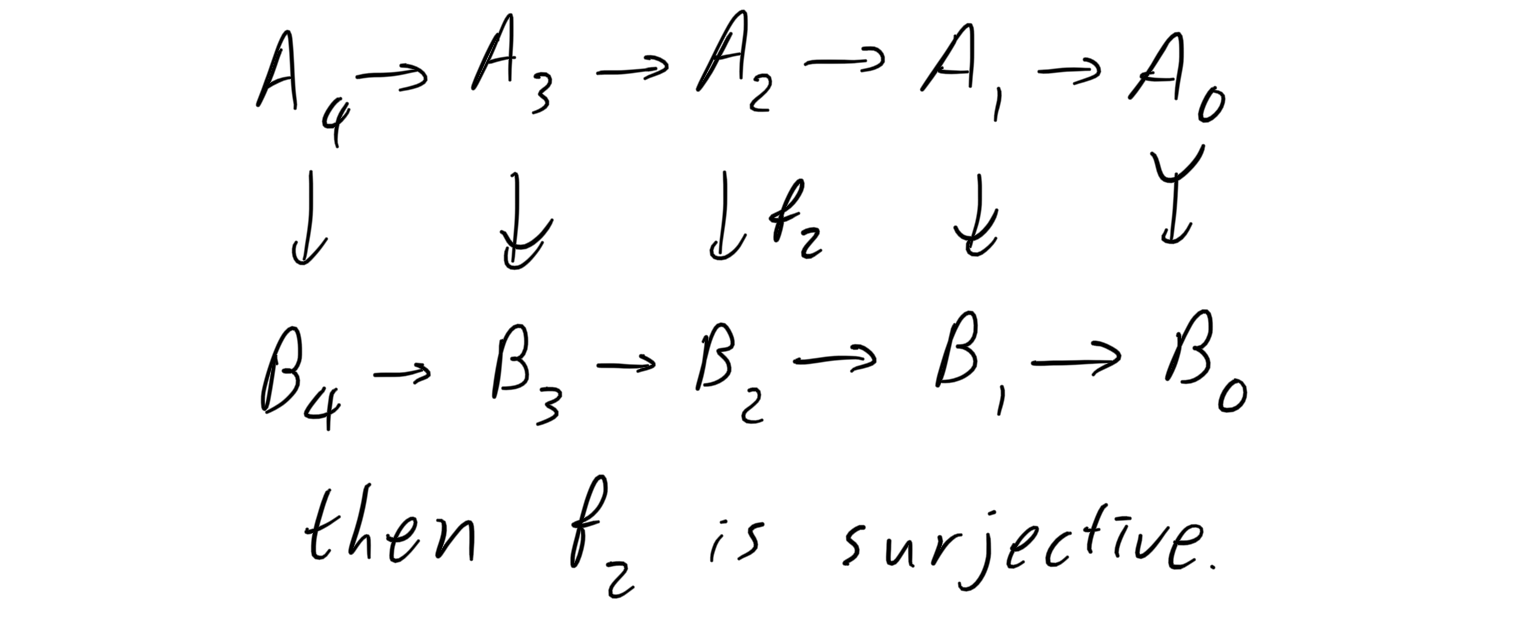 A₄ → A₃ → A₂ → A₁ → A₀
↓ ↡ ↓ f₂ ↡ ↣
B₄ → B₃ → B₂ → B₁ → B₀
then f₂ is surjective.